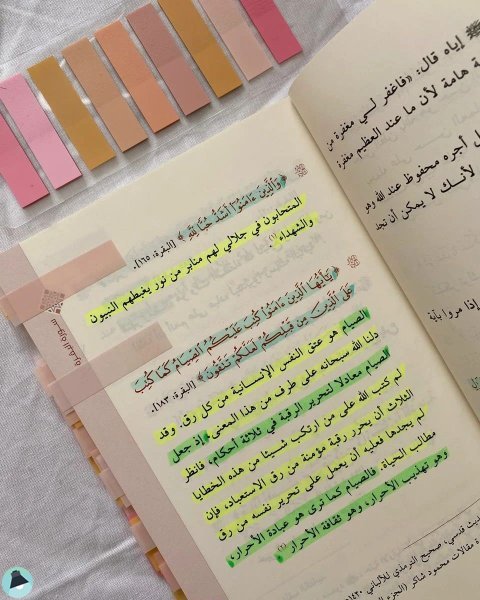 ﴿وَالَّذِينَ ءَامَنُوا أَشَدُّ حُبًّا لِلَّهِ﴾ [البقرة: ١٦٥].
المتحابون في جلالي لهم منابر من نور يغبطهم النبيون
والشهداء(١).
﴿يَأَيُّهَا الَّذِينَ ءَامَنُوا كُتِبَ عَلَيْكُمُ الصِّيَامُ كَمَا كُتِبَ
عَلَى الَّذِينَ مِن قَبْلِكُمْ لَعَلَّكُمْ تَتَّقُونَ﴾ [البقرة: ١٨٣].
الصيام هو عتق النفس الإنسانية من كل رق. وقد
دلنا الله سبحانه على طرف من هذا المعنى إذ جعل
الصيام معادلا لتحرير الرقبة في ثلاثة أحكام، فانظر
لم كتب الله على من ارتكب شيئا من هذه الخطايا
الثلاث أن يحرر رقبة مؤمنة من رق الاستعباد، فإن
لم يجدها فعليه أن يعمل على تحرير نفسه من رق
مطالب الحياة. فالصيام كما ترى هو عبادة الأحرار،
وهو تهذيب الأحرار، وهو ثقافة الأحرار(٢).
سورة البقرة
حديث قدسي، صحيح الترمذي للألباني
مقالات محمود شاكر
إياه قال: «فاغفر لي مغفرة من
هامة لأن ما عند العظيم
أجره محفوظ عند الله وهو
لأنك لا يمكن أن تجد
إذا مروا بآية